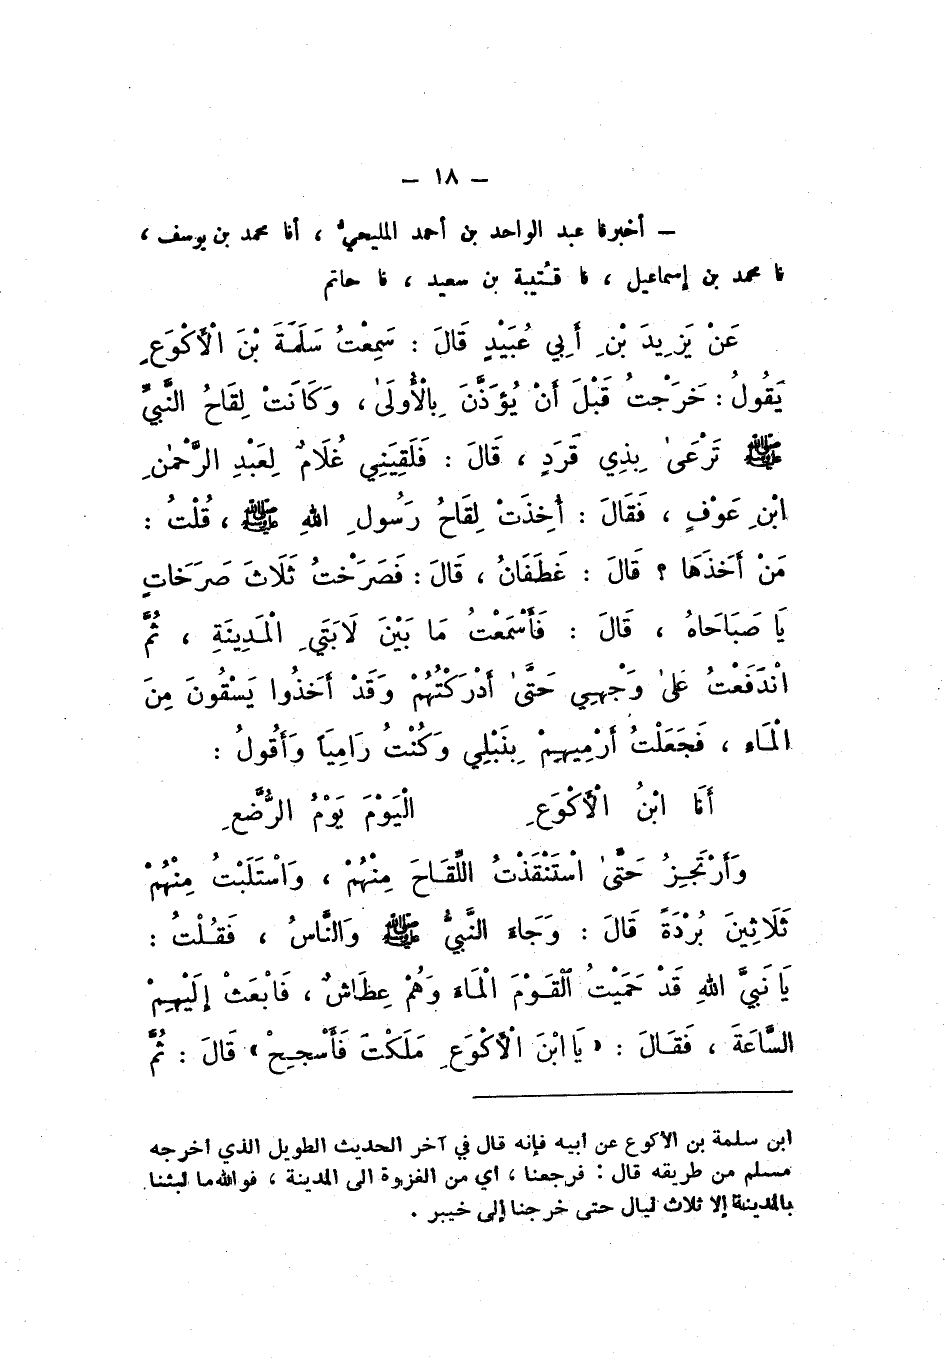 – ١٨ –
– أخبرنا عبد الواحد بن أحمد المليحيُّ ، أنا محمد بن يوسف ،
نا محمد بن إسماعيل ، نا قُتيبة بن سعيد ، نا حاتم
عَنْ يَزِيدَ بْنِ أَبِي عُبَيْدٍ قَالَ : سَمِعْتُ سَلَمَةَ بْنَ الْأَكْوَعِ
يَقُولُ : خَرَجْتُ قَبْلَ أَنْ يُؤَذَّنَ بِالْأُولَىٰ ، وَكَانَتْ لِقَاحُ النَّبِيِّ
ﷺ تَرْعَىٰ بِذِي قَرَدٍ ، قَالَ : فَلَقِيَنِي غُلَامٌ لِعَبْدِ الرَّحْمٰنِ
ابْنِ عَوْفٍ ، فَقَالَ : أُخِذَتْ لِقَاحُ رَسُولِ اللهِ ﷺ ، قُلْتُ :
مَنْ أَخَذَهَا ؟ قَالَ : غَطَفَانُ ، قَالَ : فَصَرَخْتُ ثَلَاثَ صَرَخَاتٍ
يَا صَبَاحَاهُ ، قَالَ : فَأَسْمَعْتُ مَا بَيْنَ لَابَتَيِ الْمَدِينَةِ ، ثُمَّ
انْدَفَعْتُ عَلَىٰ وَجْهِي حَتَّىٰ أَدْرَكْتُهُمْ وَقَدْ أَخَذُوا يَسْقُونَ مِنَ
الْمَاءِ ، فَجَعَلْتُ أَرْمِيهِمْ بِنَبْلِي وَكُنْتُ رَامِيَاً وَأَقُولُ :
أَنَا ابْنُ الْأَكْوَعِ الْيَوْمَ يَوْمُ الرُّضَّعِ
وَأَرْتَجِزُ حَتَّىٰ اسْتَنْقَذْتُ اللِّقَاحَ مِنْهُمْ ، وَاسْتَلَبْتُ مِنْهُمْ
ثَلَاثِينَ بُرْدَةً قَالَ : وَجَاءَ النَّبِيُّ ﷺ وَالنَّاسُ ، فَقُلْتُ :
يَا نَبِيَّ اللهِ قَدْ حَمَيْتُ الْقَوْمَ الْمَاءَ وَهُمْ عِطَاشٌ ، فَابْعَثْ إِلَيْهِمْ
السَّاعَةَ ، فَقَالَ : « يَا ابْنَ الْأَكْوَعِ مَلَكْتَ فَأَسْجِحْ » قَالَ : ثُمَّ
ابن سلمة بن الأكوع عن أبيه فإنه قال في آخر الحديث الطويل الذي أخرجه
مسلم من طريقه قال : فرجعنا ، أي من الغزوة الى المدينة ، فوالله ما لبثنا
بالمدينة إلا ثلاث ليال حتى خرجنا إلى خيبر .